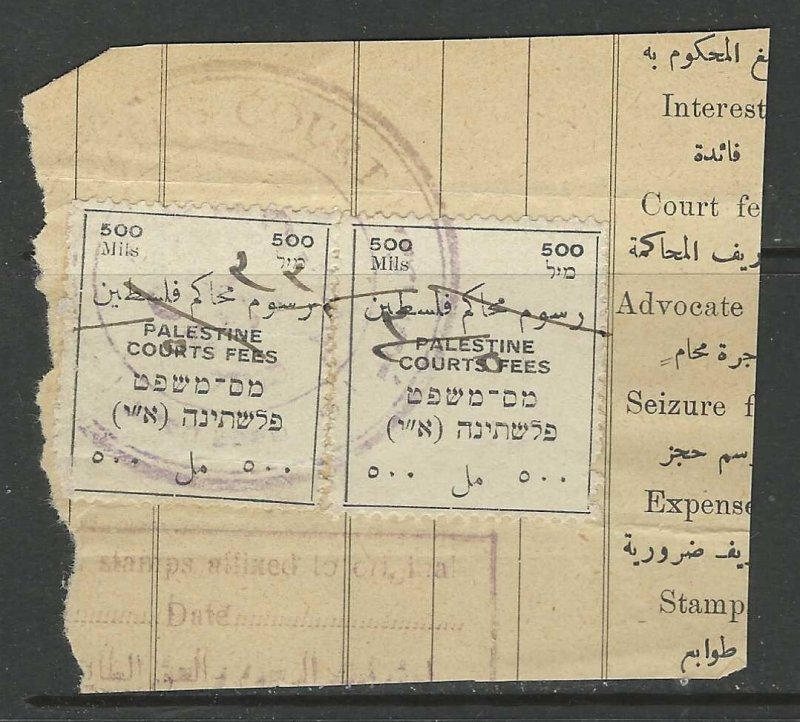 COURT
500 500
Mils מיל
رسوم محاكم فلسطين
PALESTINE
COURTS FEES
מס־משפט
פלשתינה (א״י)
٥٠٠ مل ٥٠٠
500 500
Mils מיל
رسوم محاكم فلسطين
PALESTINE
COURTS FEES
מס־משפט
פלשתינה (א״י)
٥٠٠ مل ٥٠٠
stamps affixed to original
Date
المحكوم به
Interest
فائدة
Court fe
ريف المحاكمة
Advocate
جرة محام
Seizure f
رسم حجز
Expense
يف ضرورية
Stamp
طوابع